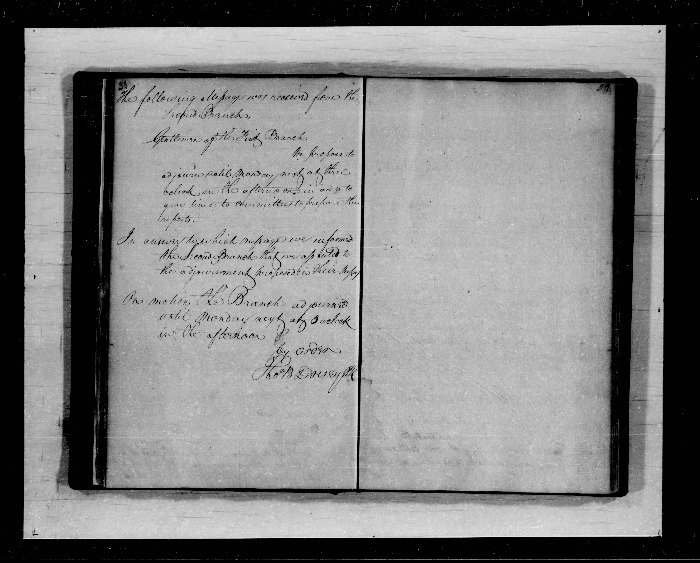 The following Message was received from the
Second Branch.
Gentlemen of the First Branch
We propose to
adjourn until Monday next at three
oClock in the afternoon in order to
give time to committees to prepare their
reports.
In answer to which message we informed
the Second Branch that we assented to
the adjournment proposed in their Message
On motion, The Branch adjourned
until Monday next at 3 oclock
in the afternoon
by order
Thos B Dorsey Clk